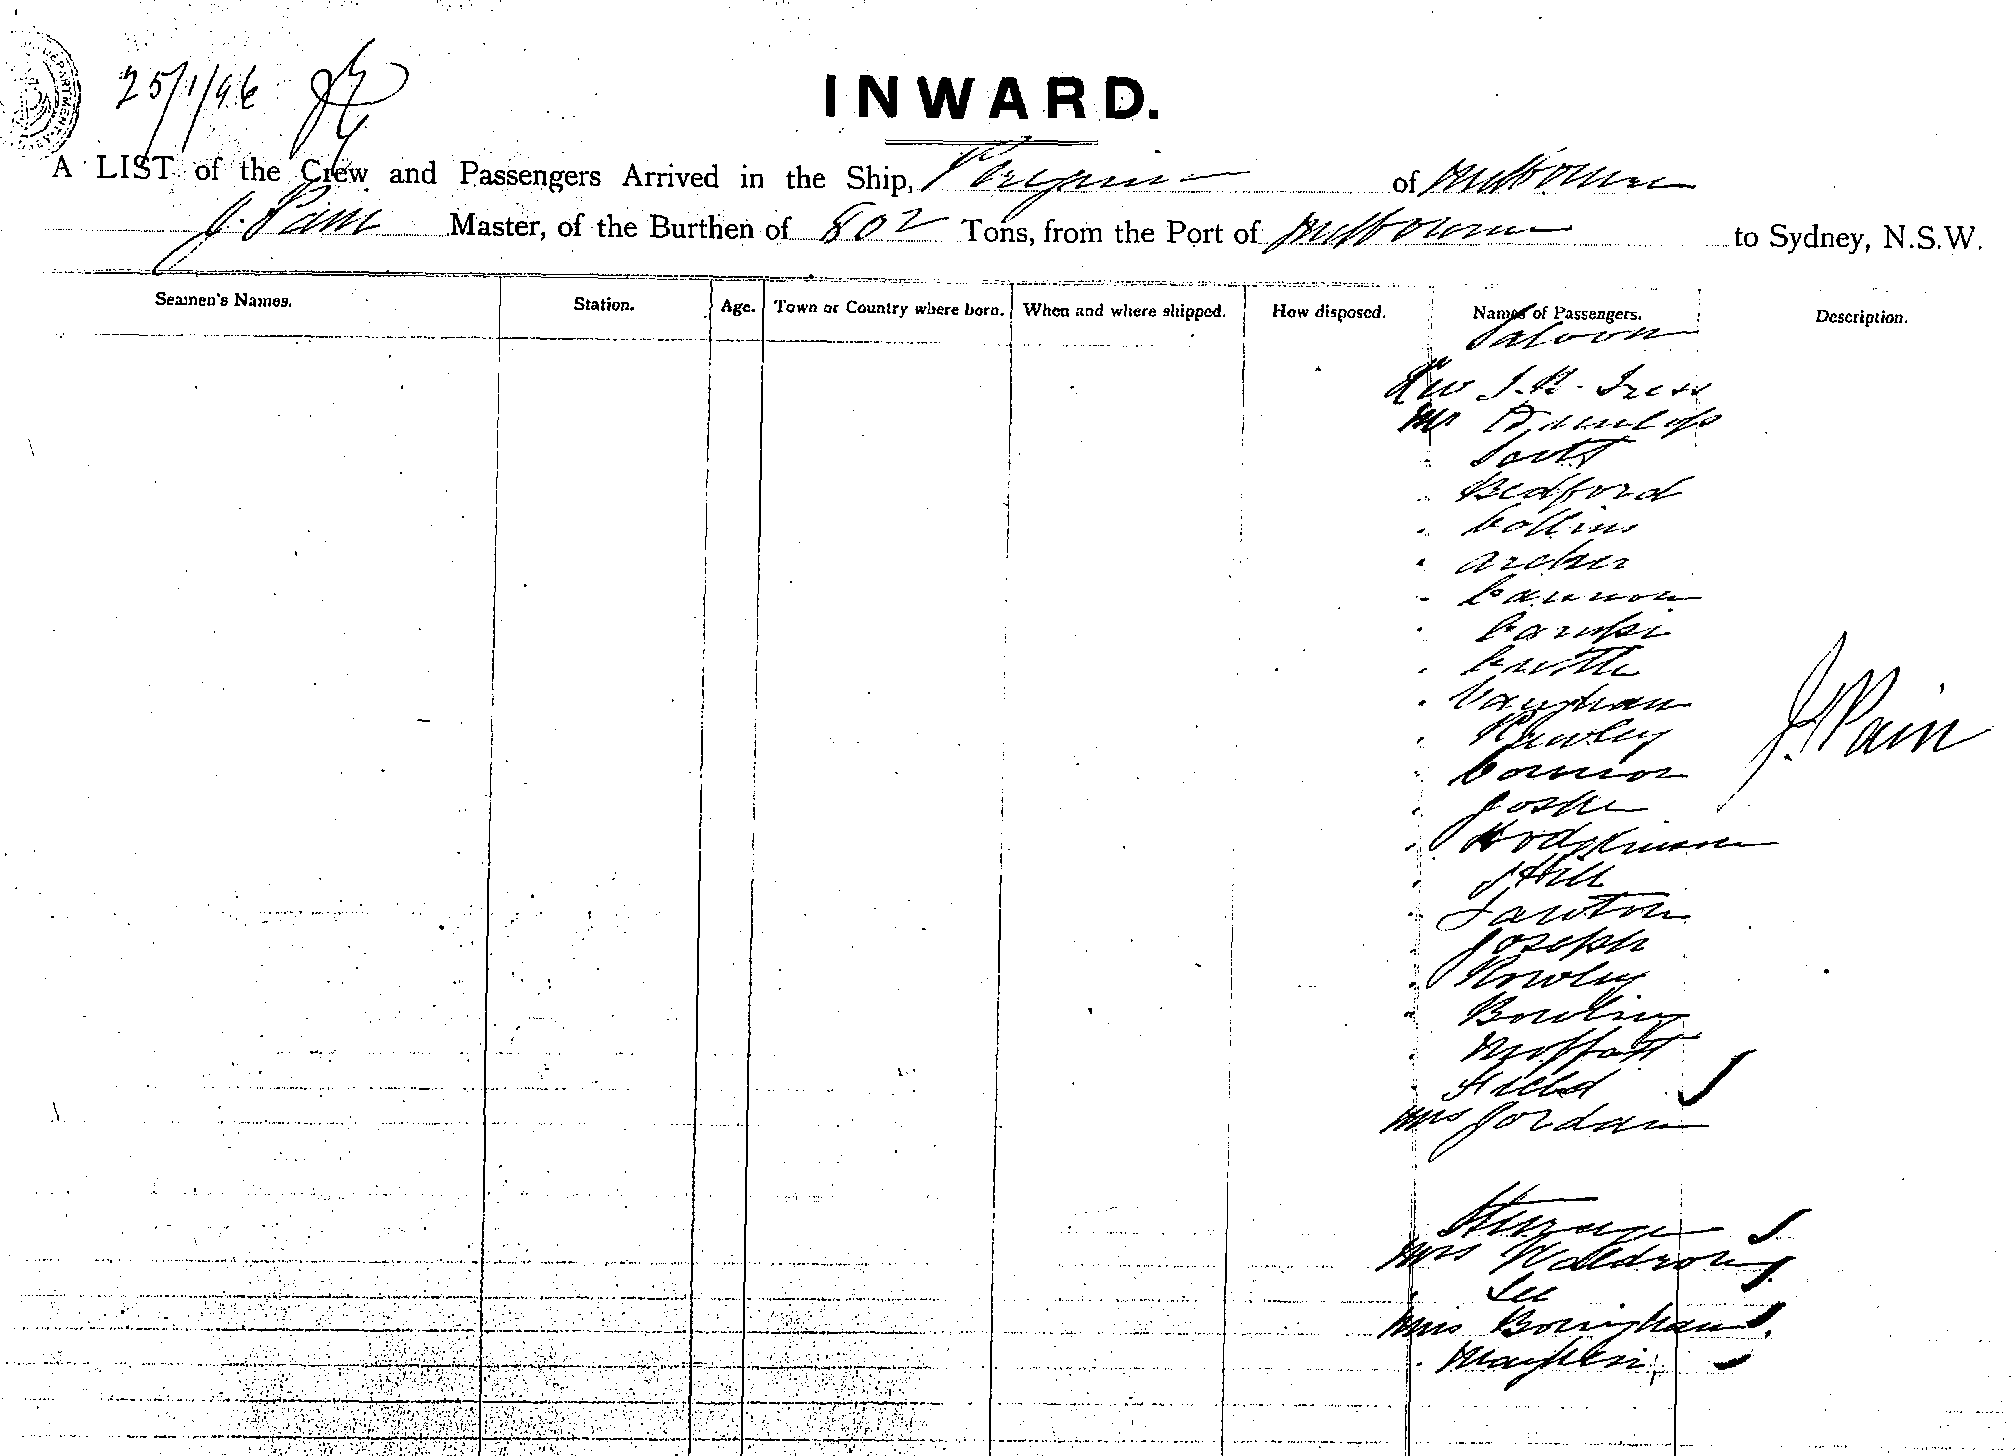 25/1/96
INWARD.
A LIST of the Crew and Passengers Arrived in the Ship, of Melbourne
J. Pain Master, of the Burthen of 802 Tons, from the Port of Melbourne to Sydney, N.S.W.
Seamen's Names. Station. Age. Town or Country where born. When and where shipped. How disposed. Names of Passengers. Description.
Saloon
Rev
Mr Dunlop
" Scott
" Bedford
" Collins
" Archer
" Cannon
"
"
" Vaughan
" Rowley
J. Pain
" Connor
" Joske
" Hodgkinson
" Hill
" Lawton
" Joseph
" Rowley
" Bowling
" Moffatt
"
Mrs Jordan
Mrs Waldron
" Lee
Miss
"